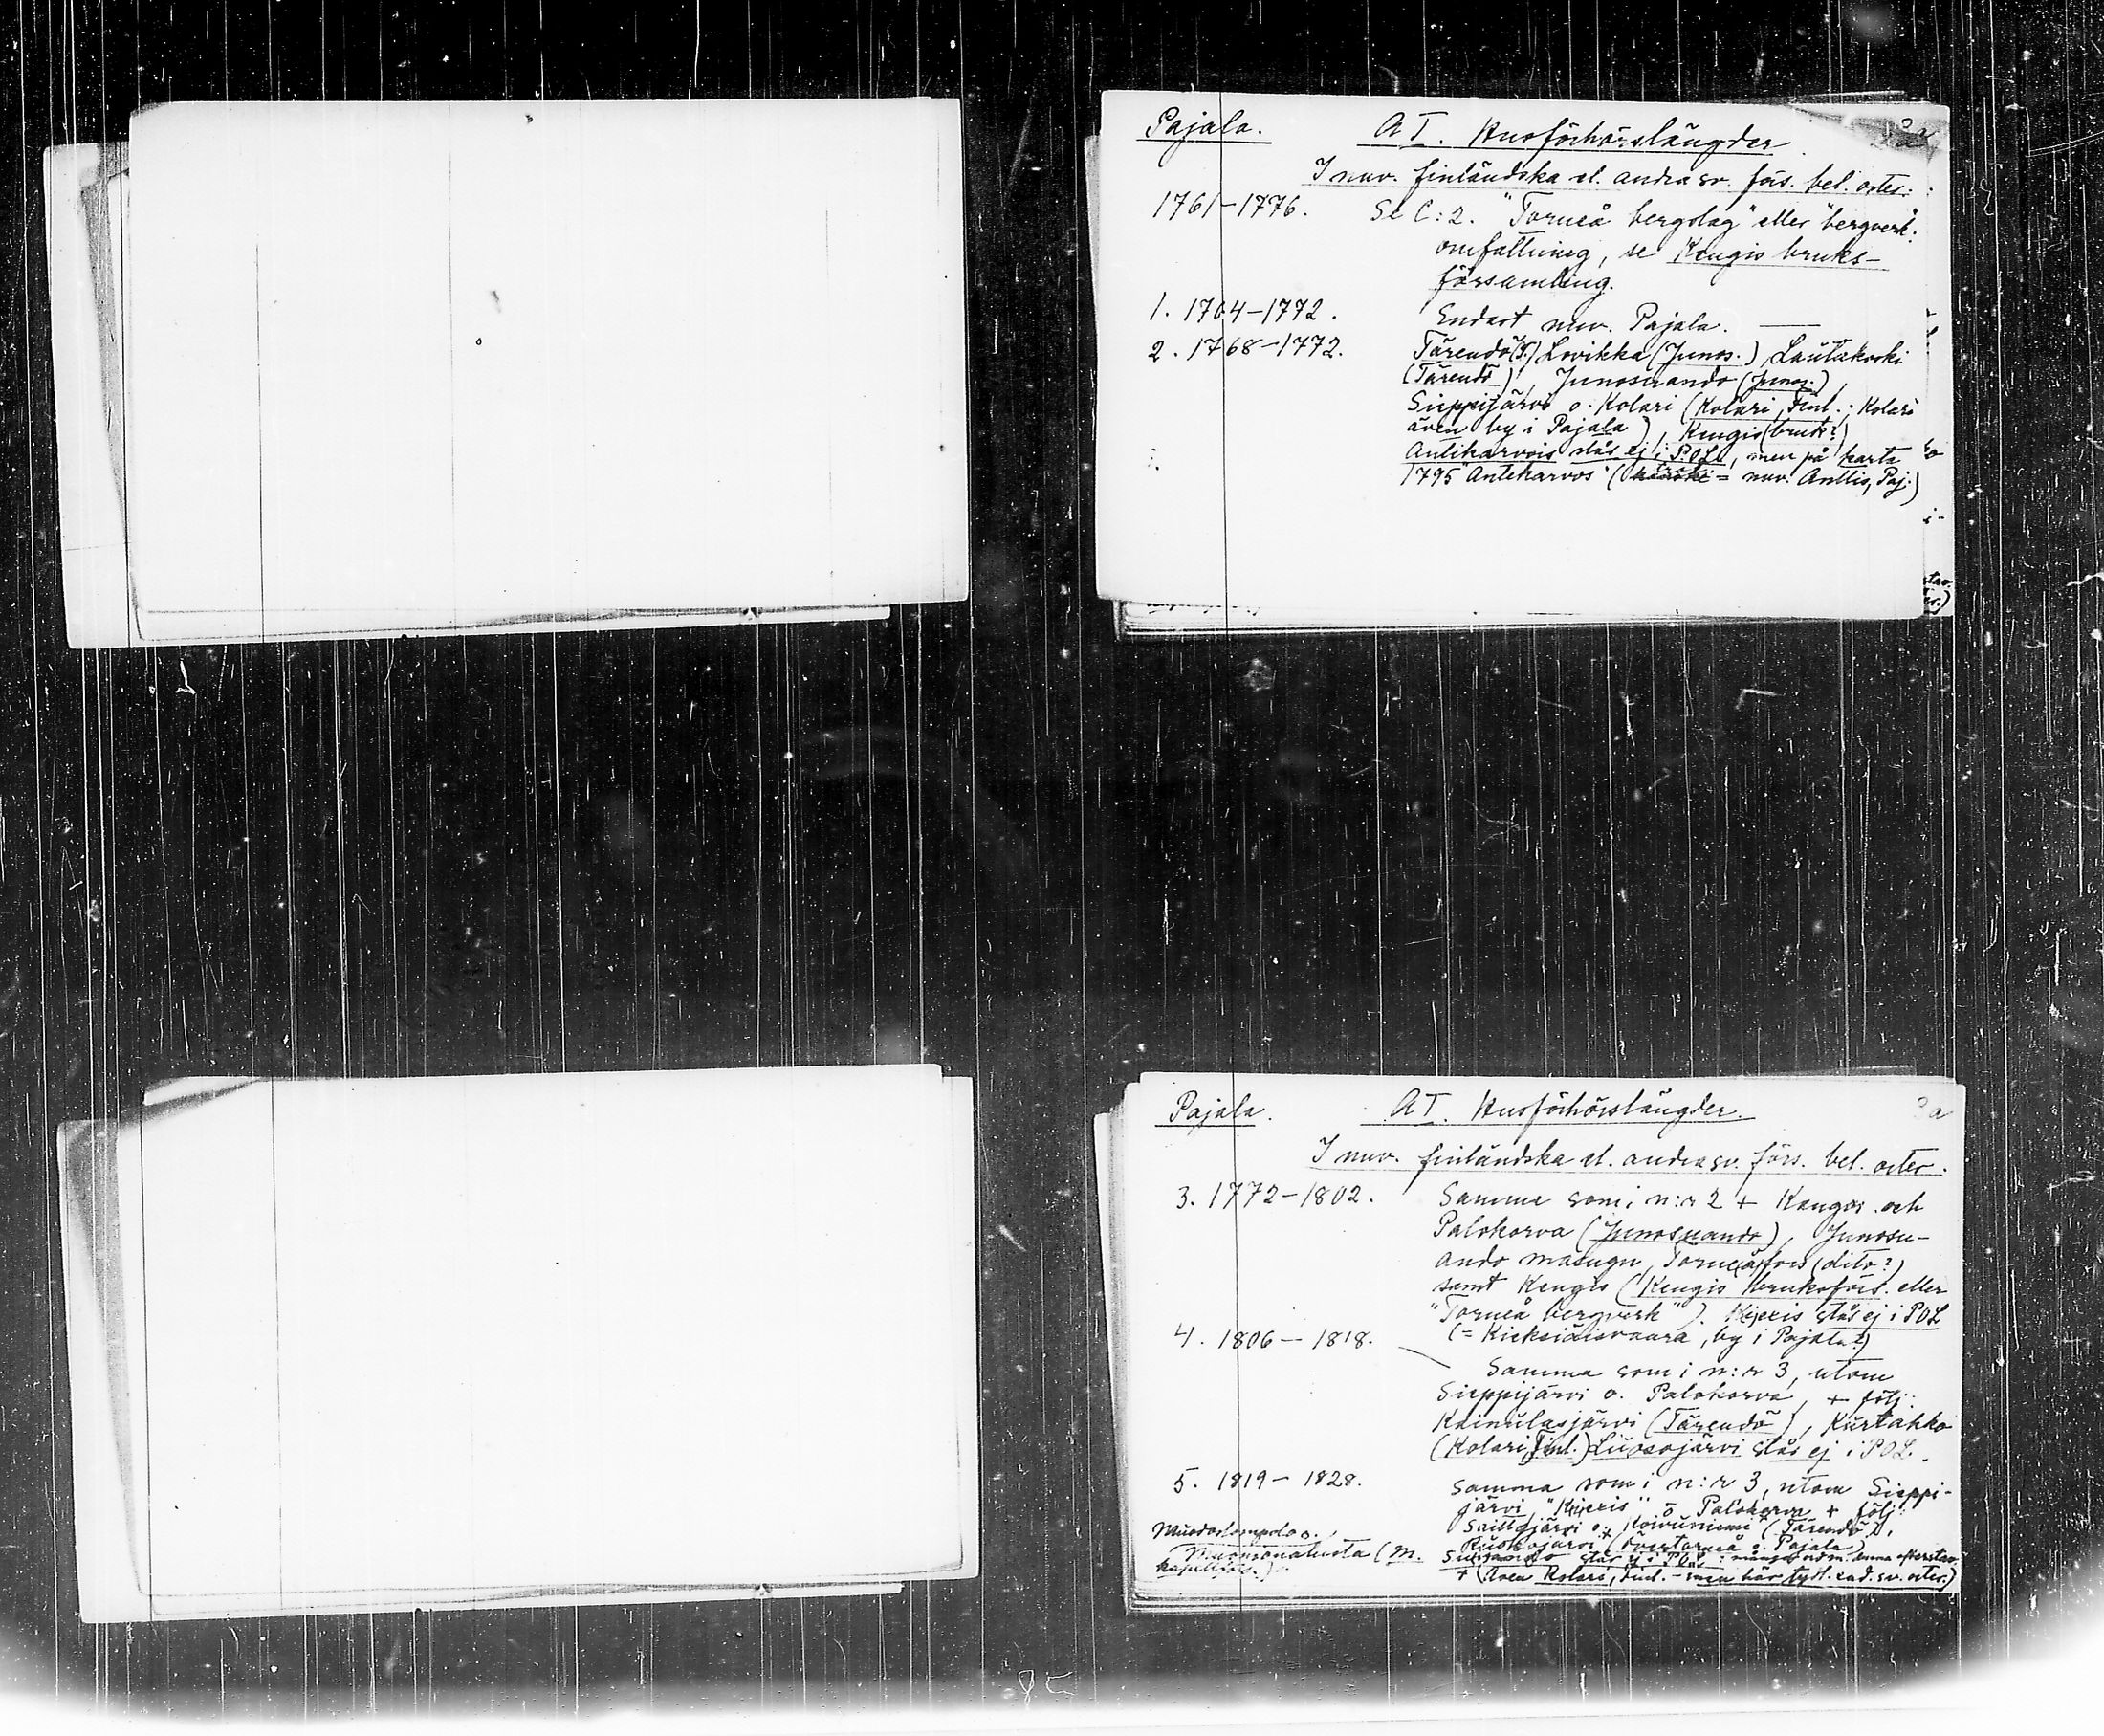 Pajala. A I. Husförhörslängder. 2a
I nuv. finländska el. andra sv. förs. bel. orter:
1761-1776. Se C:2. "Torneå bergslag" eller "bergverk":
omfattning, se Kengis bruks-
församling.
1. 1764-1772. Endast nuv. Pajala.
2. 1768-1772. Tärendö (T.) Lovikka (Junos.), Lautakoski
(Tärendö), Junosuando (Junos.),
Sieppijärvi o. Kolari (Kolari, Finl.; Kolari
även by i Pajala), Kengis (bruk?)
Antiharvois står ej i POL, men på karta
1795 "Anteharvos" ( = nuv. Anttis, Paj.)
Pajala. A I. Husförhörslängder. 3a
I nuv. finländska el. andra sv. förs. bel. orter:
3. 1772-1802. Samma som i n:r 2 + Kangos och
Palokorva (Junosuando), Junosu-
ando masugn, Torneåfors (dito?)
samt Kengis (Kengis bruksförs. eller
"Torneå bergverk"). Kiexis står ej i POL
(= Kieksiäisvaara, by i Pajala?)
4. 1806-1818. Samma som i n:r 3, utom
Sieppijärvi o. Palokorva, + följ:
Kainulasjärvi (Tärendö), Kurtakko
(Kolari, Finl.) Liuosojärvi står ej i POL.
5. 1819-1828. Samma som i n:r 3, utom Sieppi-
järvi "Kiexis" o. Palokorva + följ:
Saittajärvi o. Koivuniemi (Tärendö),
Muodoslompolo o. Ruokojärvi (Övertorneå o. Pajala)
Muonionalusta (M. står ej i POL
kapellförs.) + (Även Kolari, Finl. - men här tydl. end. sv. orter.)